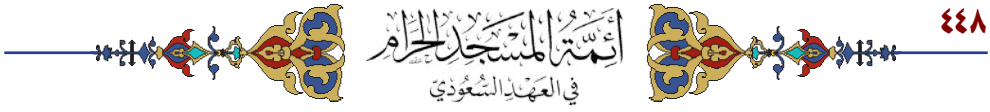 ٤٤٨
أَئِمَّةُ المَسْجِدِ الحَرَامِ
في العَهْدِ السُّعُودِيّ